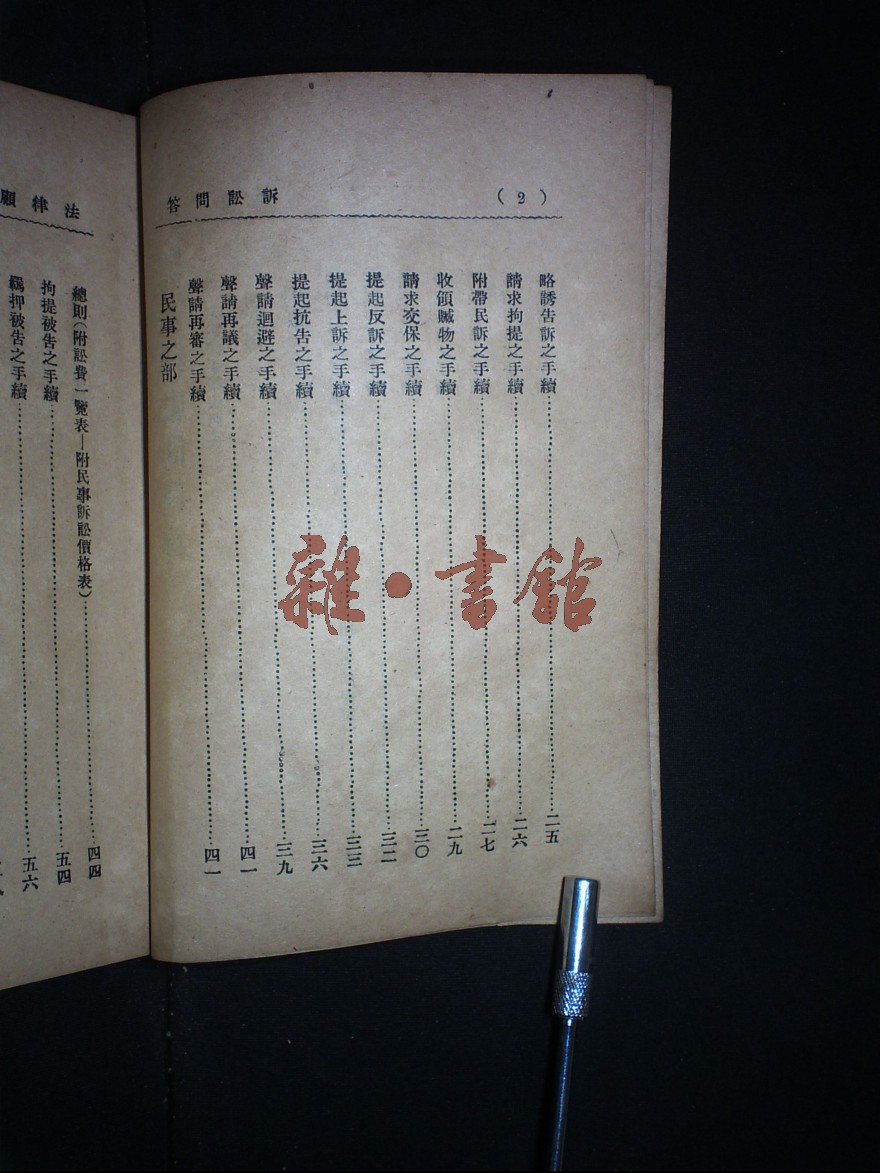 訴訟問答
(2)
略誘告訴之手續⋯⋯二五
請求拘提之手續⋯⋯二六
附帶民訴之手續⋯⋯二七
收領贓物之手續⋯⋯二九
請求交保之手續⋯⋯三〇
提起反訴之手續⋯⋯三二
提起上訴之手續⋯⋯三三
提起抗告之手續⋯⋯三六
聲請迴避之手續⋯⋯三九
聲請再議之手續⋯⋯四一
聲請再審之手續⋯⋯四一
民事之部
法律顧
總則(附訟費一覽表—附民事訴訟價格表)⋯⋯四四
拘提被告之手續⋯⋯五四
羈押被告之手續⋯⋯五六
雜·書館